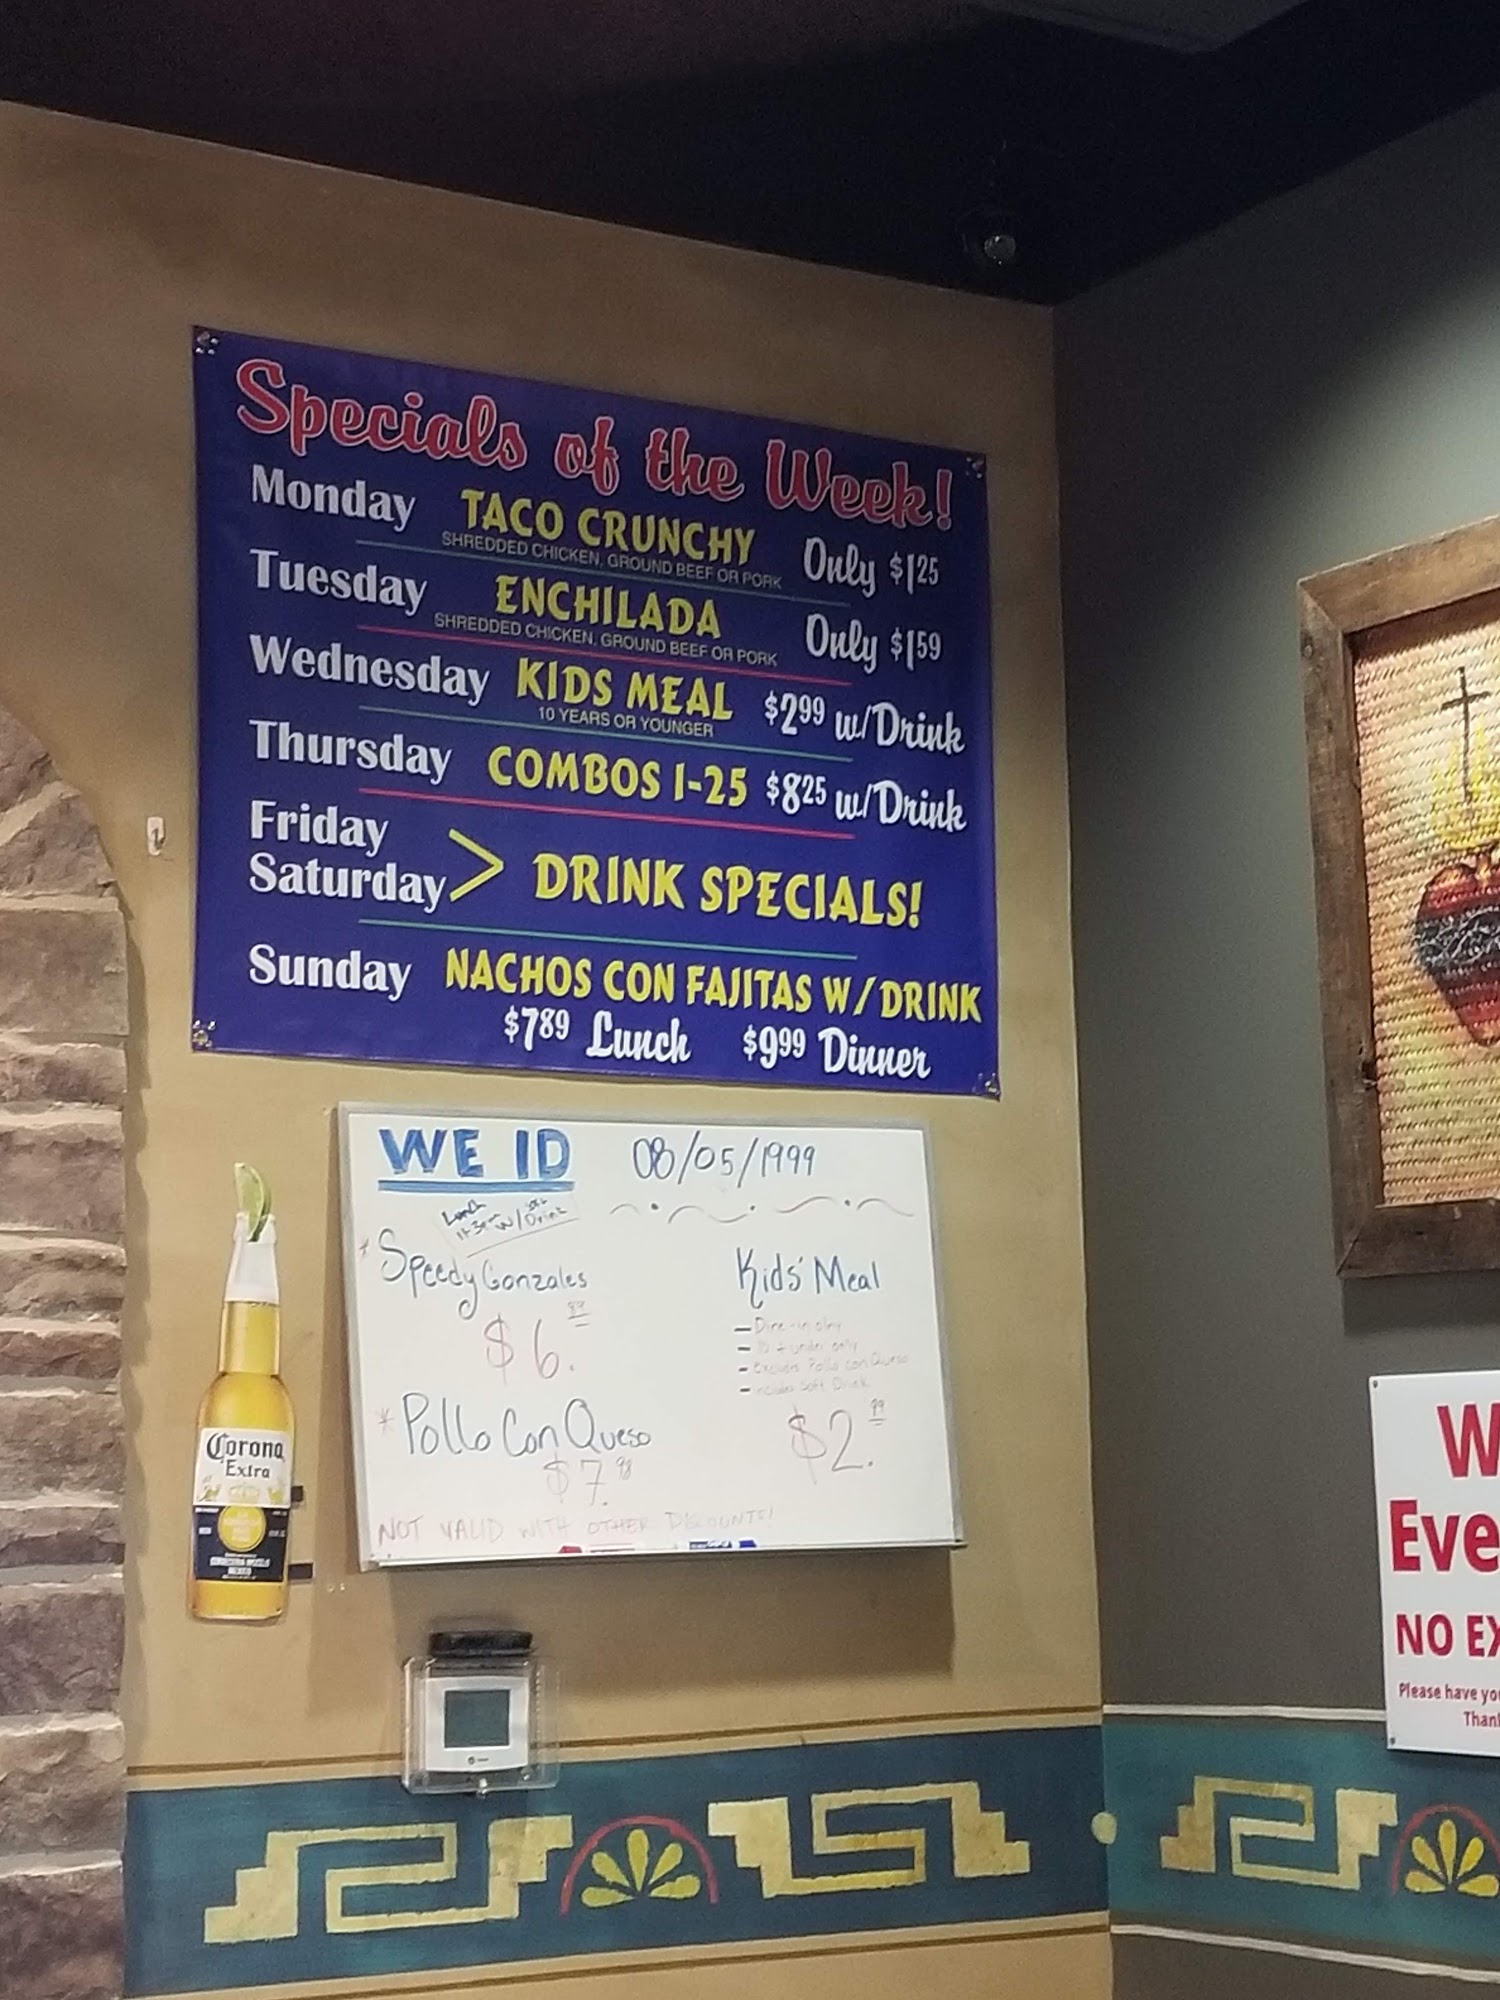 Specials of the Week!
Monday TACO CRUNCHY Only $1.25
SHREDDED CHICKEN, GROUND BEEF OR PORK
Tuesday ENCHILADA Only $1.59
SHREDDED CHICKEN, GROUND BEEF OR PORK
Wednesday KIDS MEAL $2.99 w/Drink
10 YEARS OR YOUNGER
Thursday COMBOS 1-25 $8.25 w/Drink
Friday
Saturday > DRINK SPECIALS!
Sunday NACHOS CON FAJITAS W/DRINK
$7.89 Lunch $9.99 Dinner
WE ID 08/05/1999
Lunch
w/ Drink
* Speedy Gonzales
$6.89
* Pollo Con Queso
$7.98
Kids' Meal
- Dine-in only
- 10 & under only
- excludes Pollo con Queso
- includes Soft Drink
$2.99
NOT VALID WITH OTHER DISCOUNTS!
Corona
Extra
W
Eve
NO EX
Please have you
Than